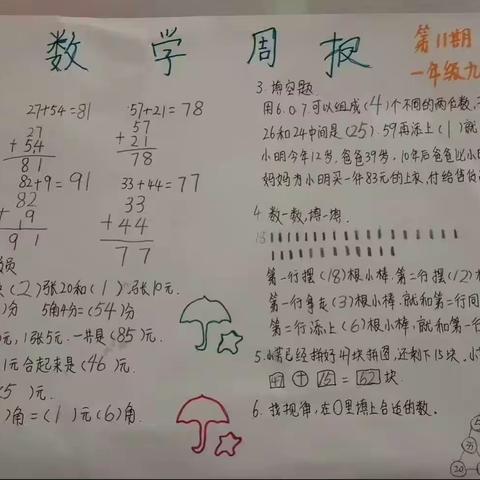 数 学 周 报
第11期
一年级九
27+54=81
27
+ 54
81
57+21=78
57
+ 21
78
82+9=91
82
+ 9
91
33+44=77
33
+ 44
77
(2)张20和(1)张10元.
)分 5角4分=(54)分
元,1张5元.一共是(85)元.
1元合起来是(46)元.
(5)元.
)角=(1)元(6)角.
3.填空题.
用6.0.7可以组成(4)个不同的两位数,
26和24中间是(25).59再添上(1)就
小明今年12岁,爸爸39岁,10年后爸爸比小
妈妈为小明买一件83元的上衣,付给售货
4.数一数,填一填.
18
第一行摆(18)根小棒.第二行摆(12)
第一行拿走(3)根小棒.就和第二行同
第二行添上(6)根小棒,就和第一行
5.小芳已经拼好47块拼图,还剩下15块.小
47 + 15 = 62 块.
6.找规律,在○里填上合适的数.
5
20